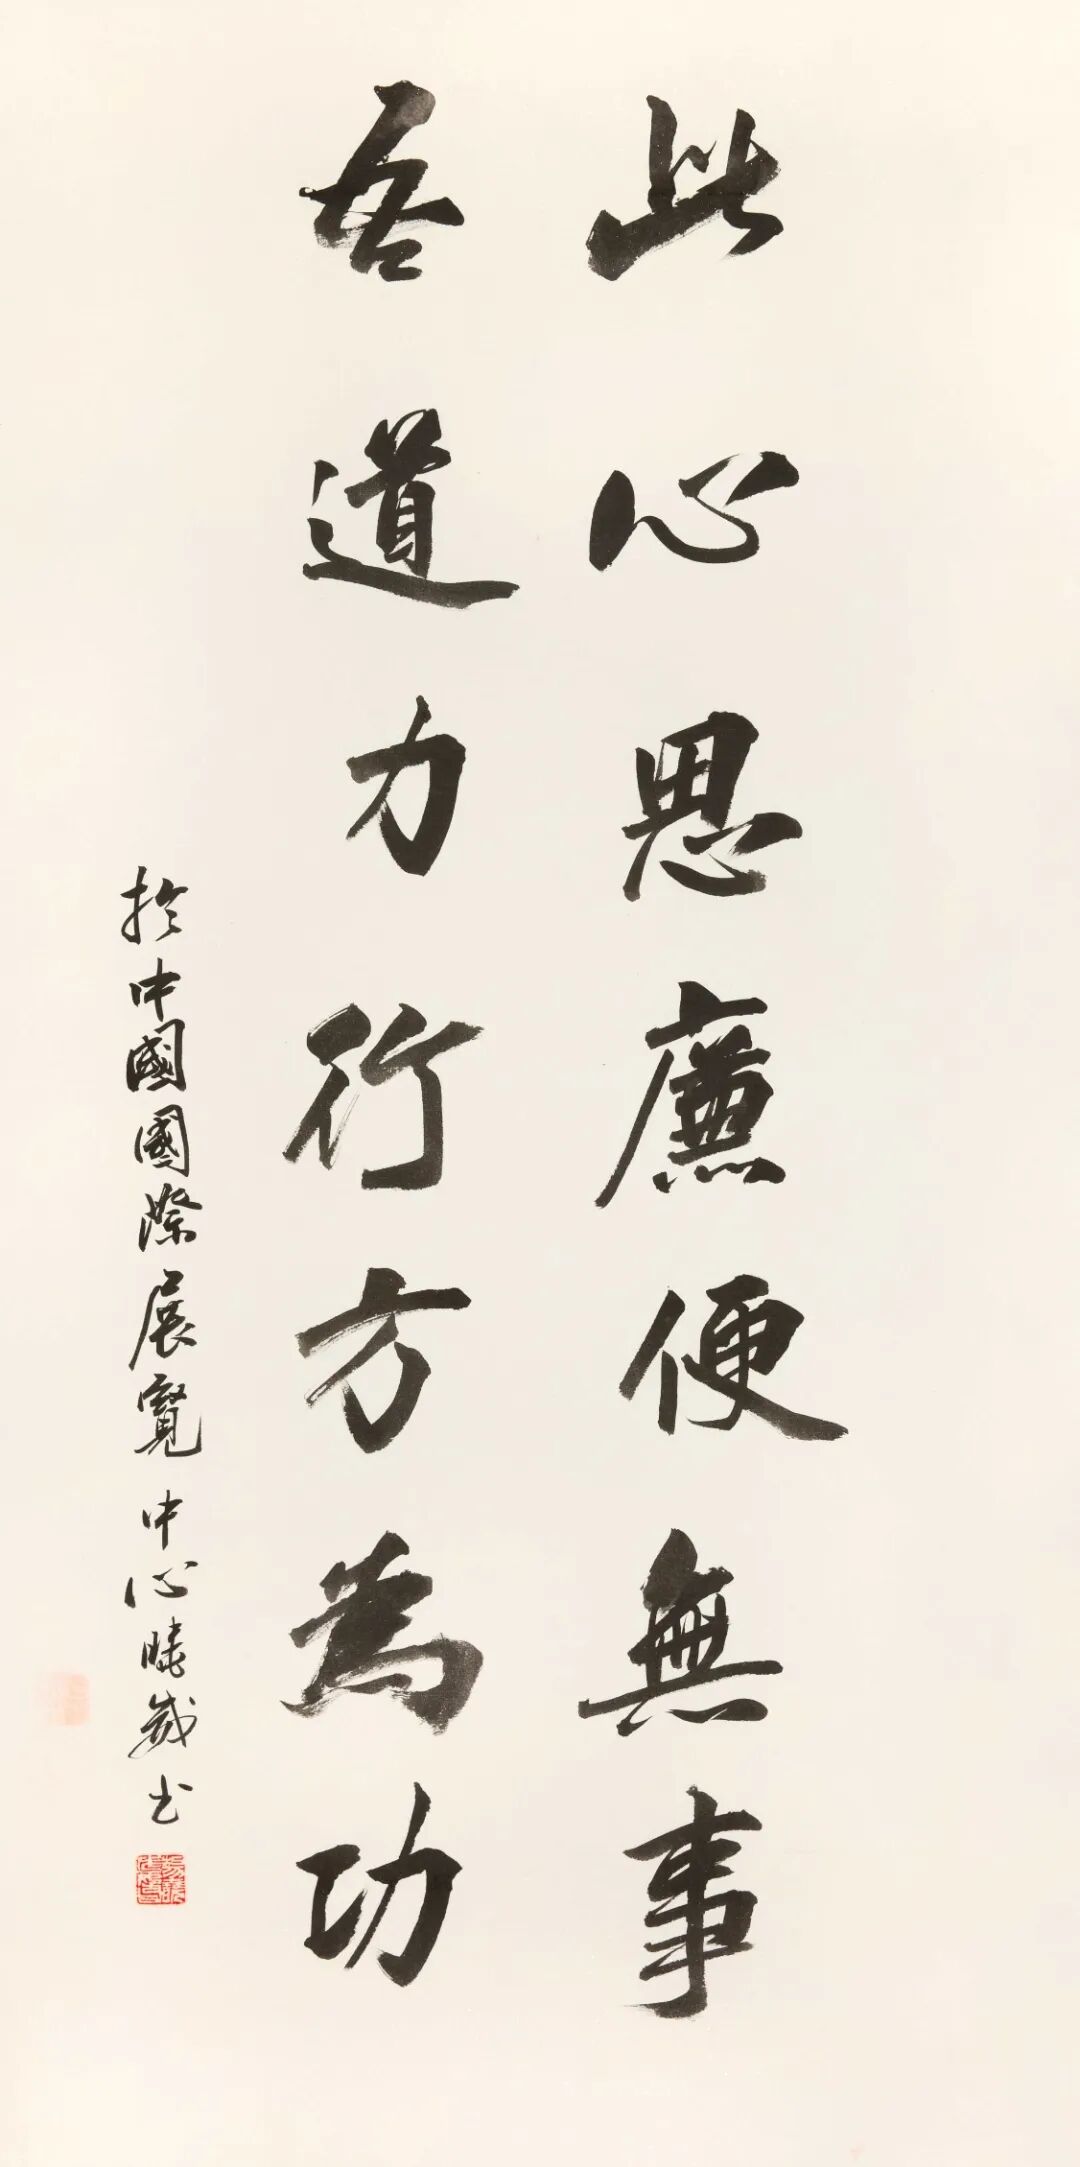 此心思廉便無事
吾道力行方為功
於中國國際展覽中心曉城书